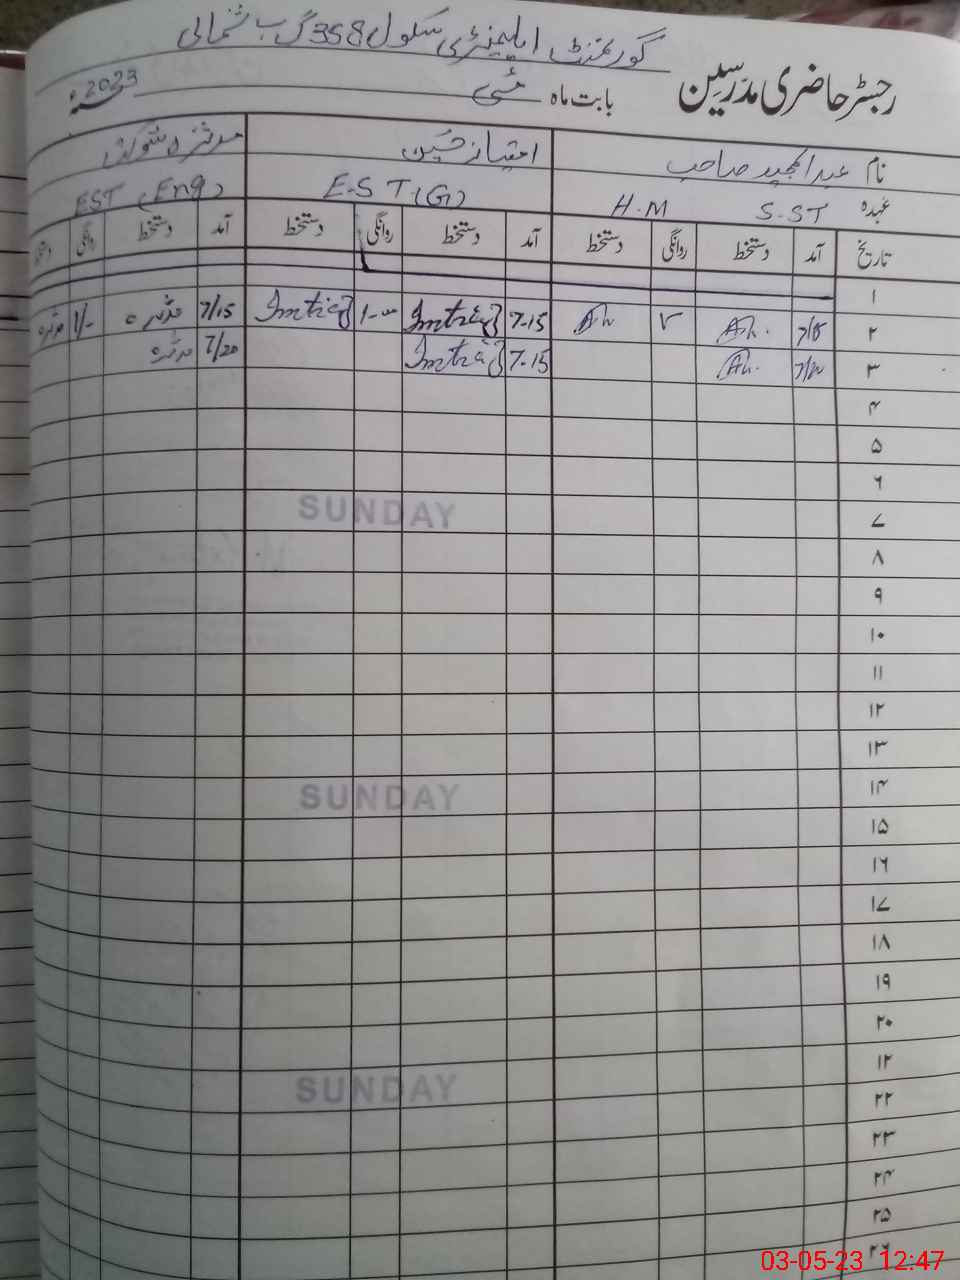 گورنمنٹ ایلیمنٹری سکول 358 گ ب شمالی
رجسٹر حاضری مدرسین بابت ماہ مئی 2023
نام عبدالمجید صاحب امتیاز حسین
عہدہ S.ST H.M E.S T (G) EST (Eng)
تاریخ آمد دستخط روانگی دستخط آمد دستخط روانگی دستخط آمد دستخط روانگی
۱
۲ 7-15 Imtiaz Imtiaz 7/15 1/-
۳ 7-15 Imtiaz 7/20
۴
۵
۶
۷ SUNDAY
۸
۹
۱۰
۱۱
۱۲
۱۳
۱۴ SUNDAY
۱۵
۱۶
۱۷
۱۸
۱۹
۲۰
۲۱ SUNDAY
۲۲
۲۳
۲۴
۲۵
۲۶
03-05-23 12:47